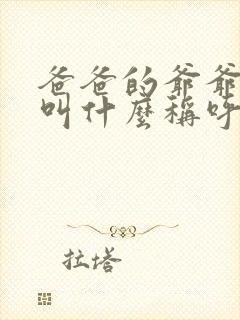 爸爸的爷爷
叫什麼稱呼
拉塔